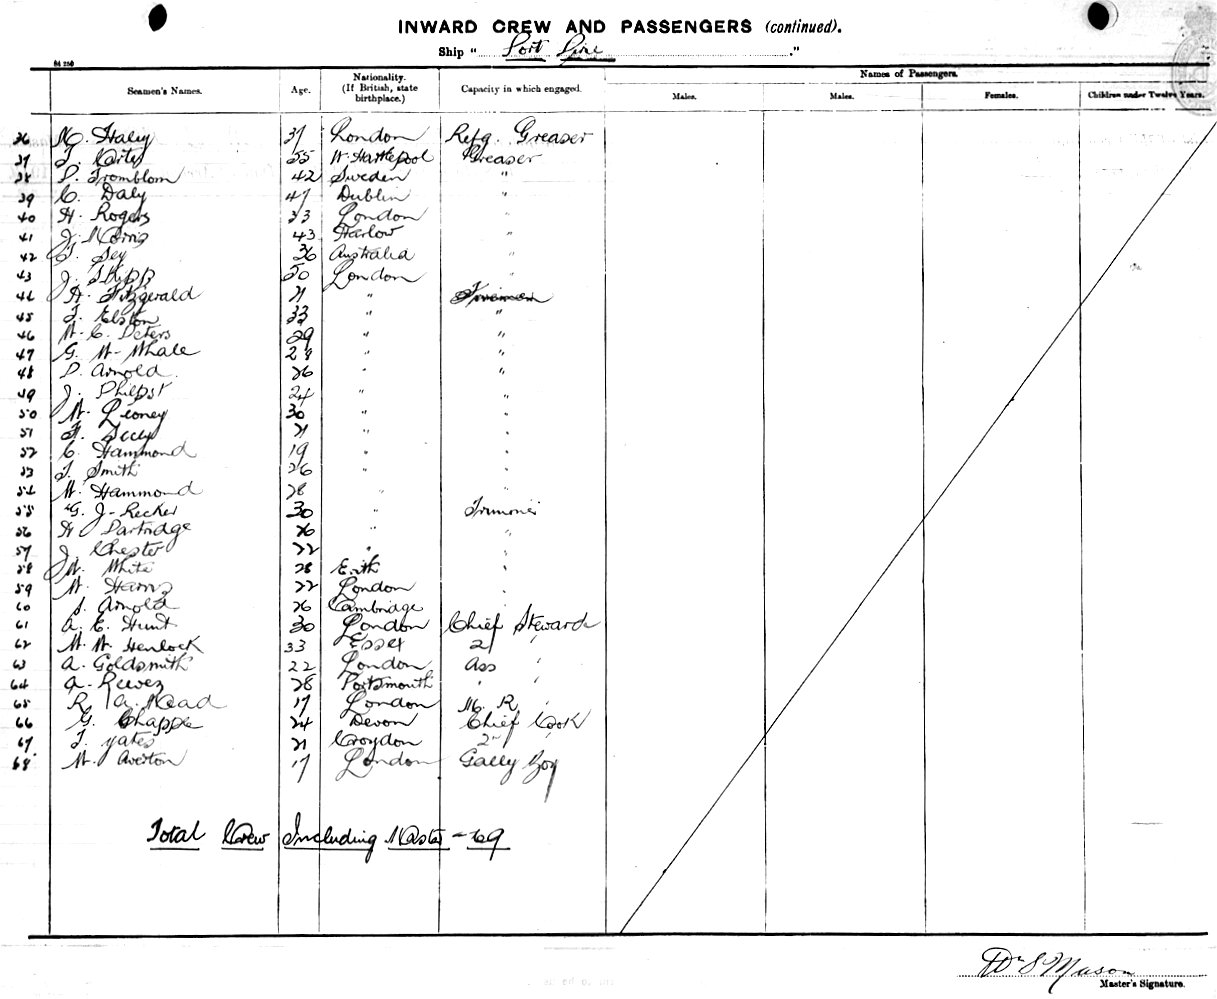 INWARD CREW AND PASSENGERS (continued).
Ship "Port Pirie"
84 250
Seamen's Names. Age. Nationality. (If British, state birthplace.) Capacity in which engaged. Names of Passengers.
Males. Males. Females. Children under Twelve Years.
36 Haley 37 London Refg. Greaser
37 55 W. Hartlepool Greaser
38 Tromblom 42 Sweden "
39 C. Daly 47 Dublin "
40 H. Rogers 33 London "
41 J. Norris 43 Harlow "
42 36 Australia "
43 J. Skipp 50 London "
44 H. Fitzgerald 21 " Firemen
45 Elston 33 " "
46 W. C. Peters 29 " "
47 G. W. Whale 28 " "
48 Arnold 26 " "
49 J. Philpst 24 " "
50 30 " "
51 21 " "
52 C. Hammond 19 " "
53 Smith 26 " "
54 W. Hammond 28 " "
55 G. J. Recker 30 " Trimmer
56 H. Partridge 26 " "
57 J. Chester 22 " "
58 W. White 28 Erith "
59 W. Harris 22 London "
60 Arnold 26 Cambridge
61 A. E. Hunt 30 London Chief Steward
62 W. W. Henlock 33 Essex 2 "
63 A. Goldsmith 22 London Ass "
64 A. Reeves 28 Portsmouth " "
65 R. A. Mead 17 London M. R "
66 G. Chapple 24 Devon Chief Cook
67 Yates 21 Croydon 2 "
68 W. Averton 17 London Gally Boy
Total Crew Including Master - 69
Wm S Mason
Master's Signature.